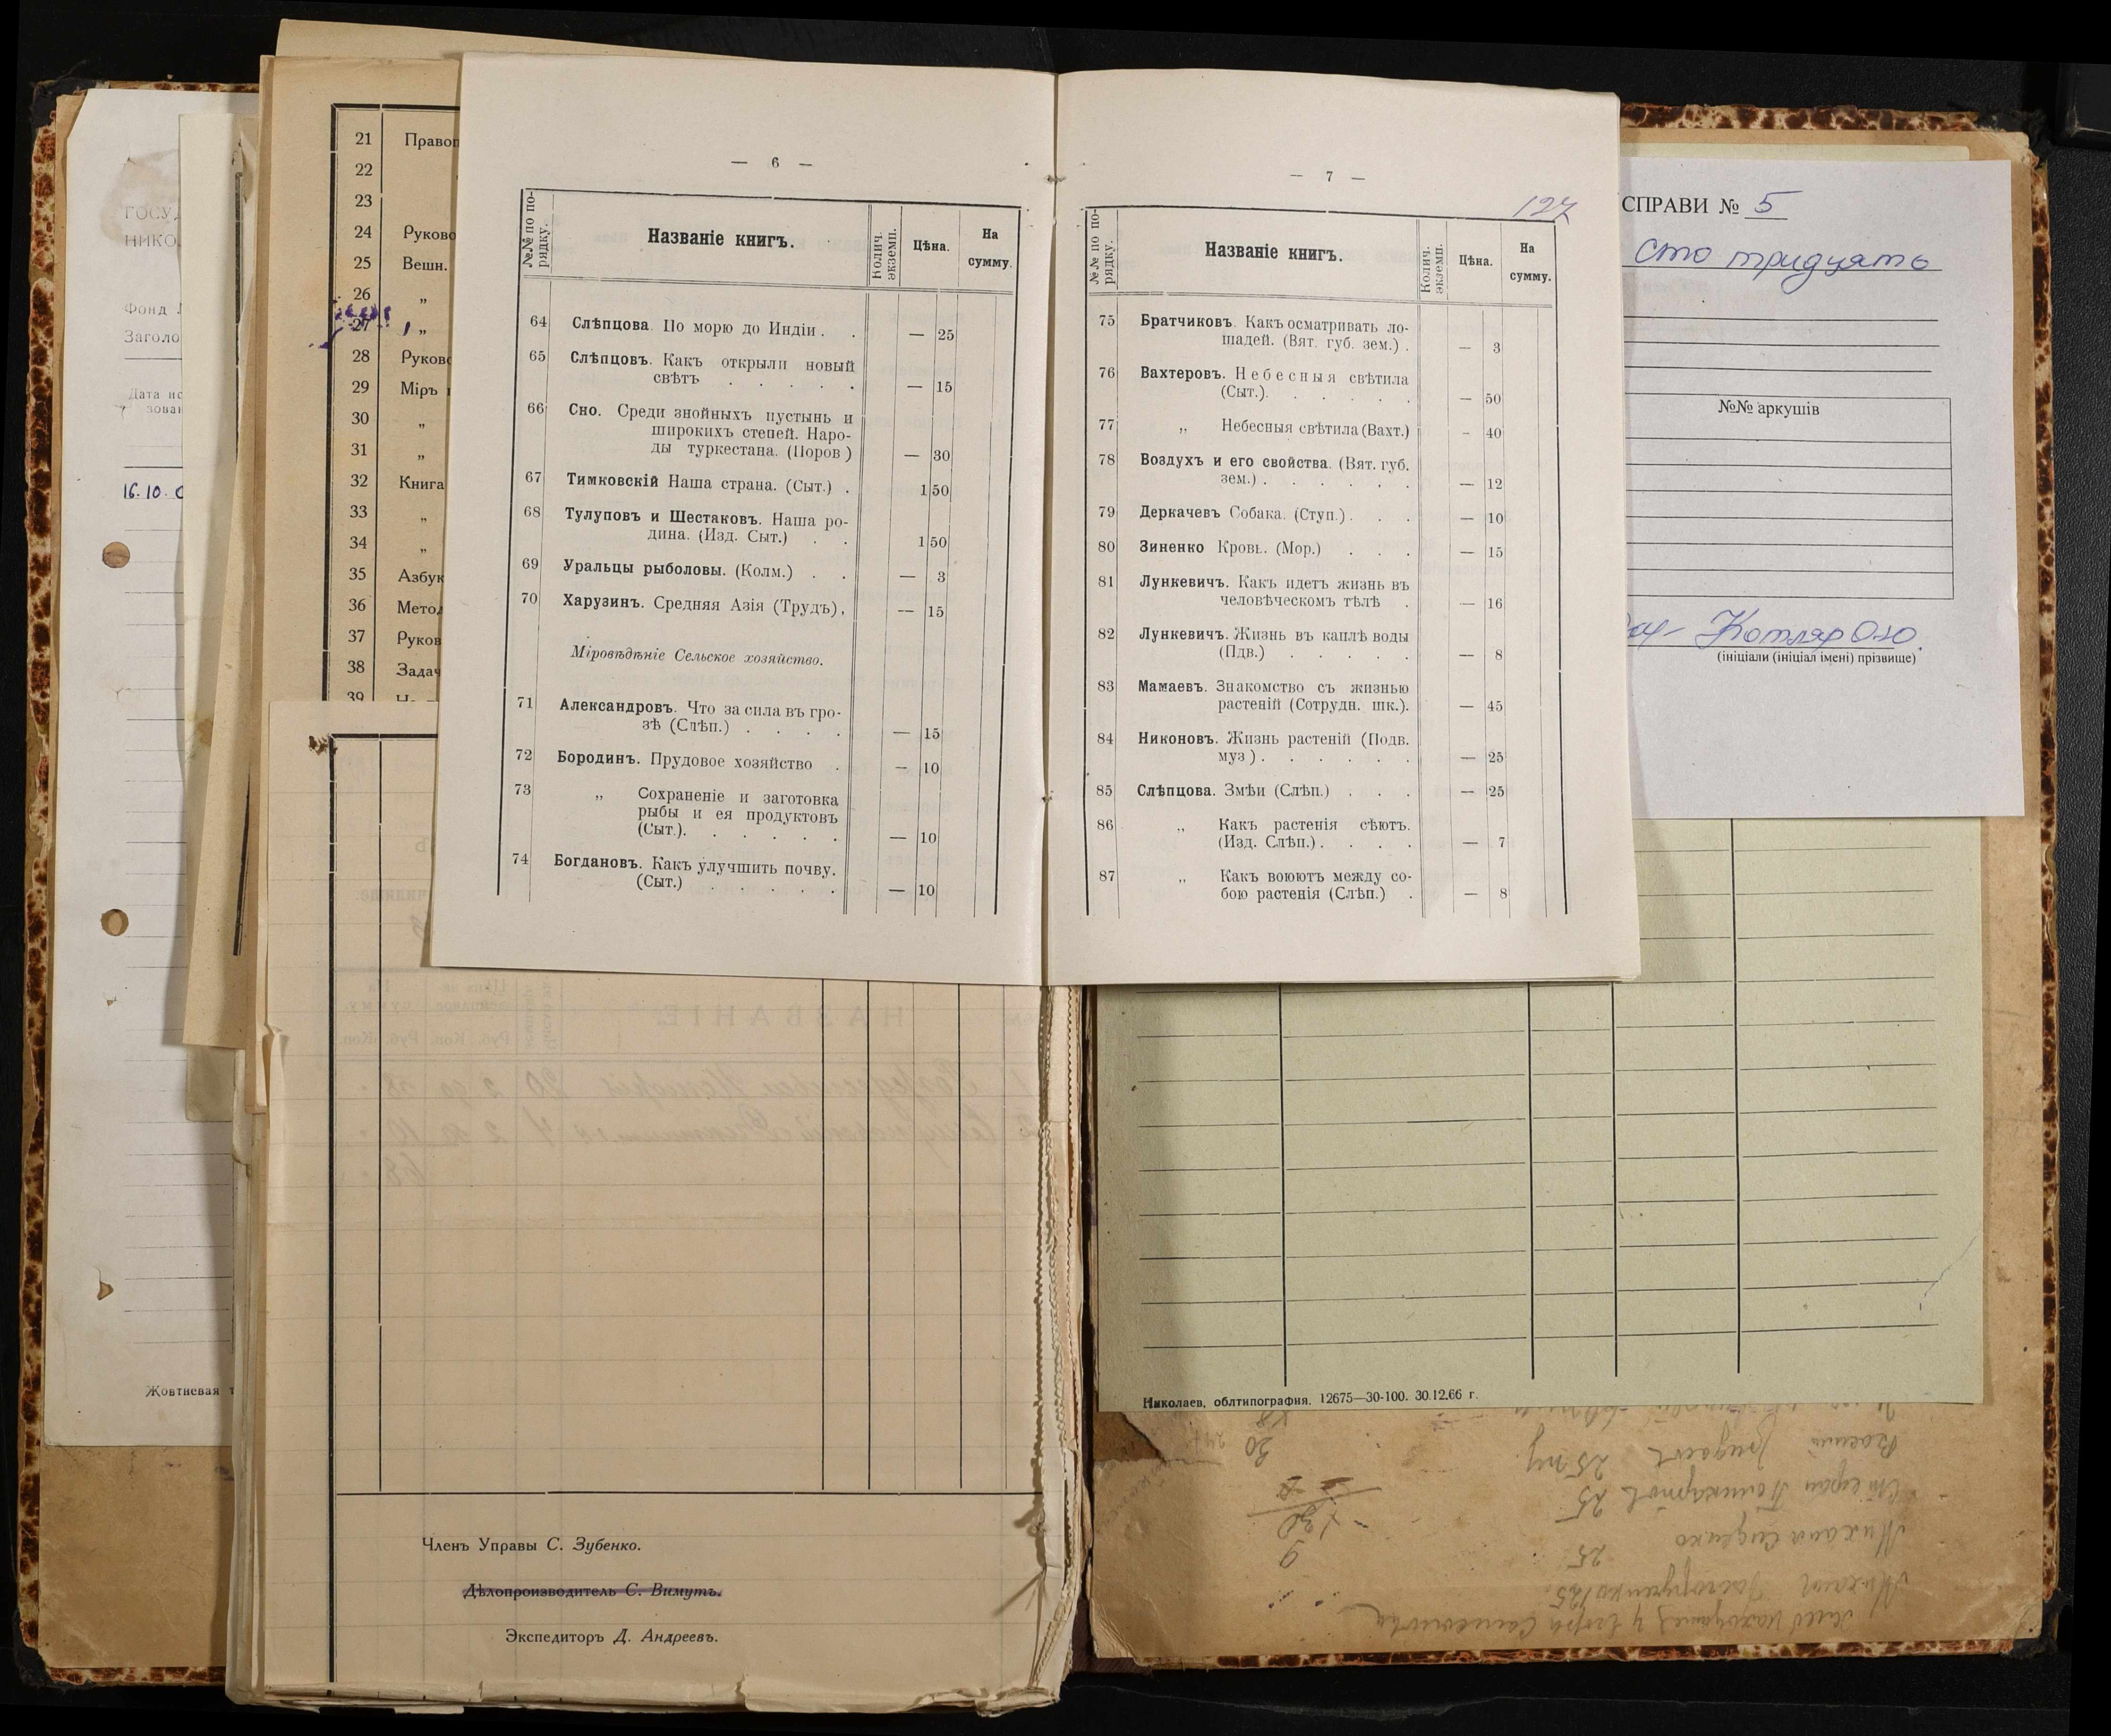 — 6 —
№№ по по-
рядку.
Названіе книгъ.
Колич.
экземп.
Цѣна.
На
сумму.
64 Слѣпцова. По морю до Индіи . . — 25
65 Слѣпцовъ. Какъ открыли новый
свѣтъ . . . . . — 15
66 Сно. Среди знойныхъ пустынь и
широкихъ степей. Наро-
ды туркестана. (Поров ) — 30
67 Тимковскій Наша страна. (Сыт.) . 1 50
68 Тулуповъ и Шестаковъ. Наша ро-
дина. (Изд. Сыт.) . . 1 50
69 Уральцы рыболовы. (Колм.) . . — 3
70 Харузинъ. Средняя Азія (Трудъ), — 15
Міровѣдѣніе Сельское хозяйство.
71 Александровъ. Что за сила въ гро-
зѣ (Слѣп.) . . . . — 15
72 Бородинъ. Прудовое хозяйство . — 10
73 „ Сохраненіе и заготовка
рыбы и ея продуктовъ
(Сыт.). . . . . — 10
74 Богдановъ. Какъ улучшить почву.
(Сыт.) . . . . . — 10
— 7 —
127
№№ по по-
рядку.
Названіе книгъ.
Колич.
экземп.
Цѣна.
На
сумму.
75 Братчиковъ. Какъ осматривать ло-
шадей. (Вят. губ. зем.) . — 3
76 Вахтеровъ. Небесныя свѣтила
(Сыт.). . . . . — 50
77 „ Небесныя свѣтила (Вахт.) - 40
78 Воздухъ и его свойства. (Вят. губ.
зем.) . . . . . . — 12
79 Деркачевъ Собака. (Ступ.) . . . — 10
80 Зиненко Кровь. (Мор.) . . . — 15
81 Лункевичъ. Какъ идетъ жизнь въ
человѣческомъ тѣлѣ . — 16
82 Лункевичъ. Жизнь въ каплѣ воды
(Пдв.) . . . . . — 8
83 Мамаевъ. Знакомство съ жизнью
растеній (Сотрудн. шк.). — 45
84 Никоновъ. Жизнь растеній (Подв.
муз ) . . . . . . — 25
85 Слѣпцова. Змѣи (Слѣп.) . . . — 25
86 „ Какъ растенія сѣютъ.
(Изд. Слѣп.) . . . . — 7
87 „ Какъ воюютъ между со-
бою растенія (Слѣп.) . — 8
21 Правоп
22
23
24 Руково
25 Вешн.
26 „
27 „
28 Руково
29 Міръ
30 „
31 „
32 Книга
33 „
34 „
35 Азбук
36 Метод
37 Руков
38 Задач
39
ГОСУД
НИКО
Фонд
Заголо
Дата ис
зован
16.10.0
Жовтневая т
СПРАВИ № 5
сто тридцять
№№ аркушів
Котляр О.Ю.
(ініціали (ініціал імені) прізвище)
НАЗВАНІЕ
Членъ Управы С. Зубенко.
Дѣлопроизводитель С. Вимутъ.
Экспедиторъ Д. Андреевъ.
Николаев, облтипография. 12675—30-100. 30.12.66 г.